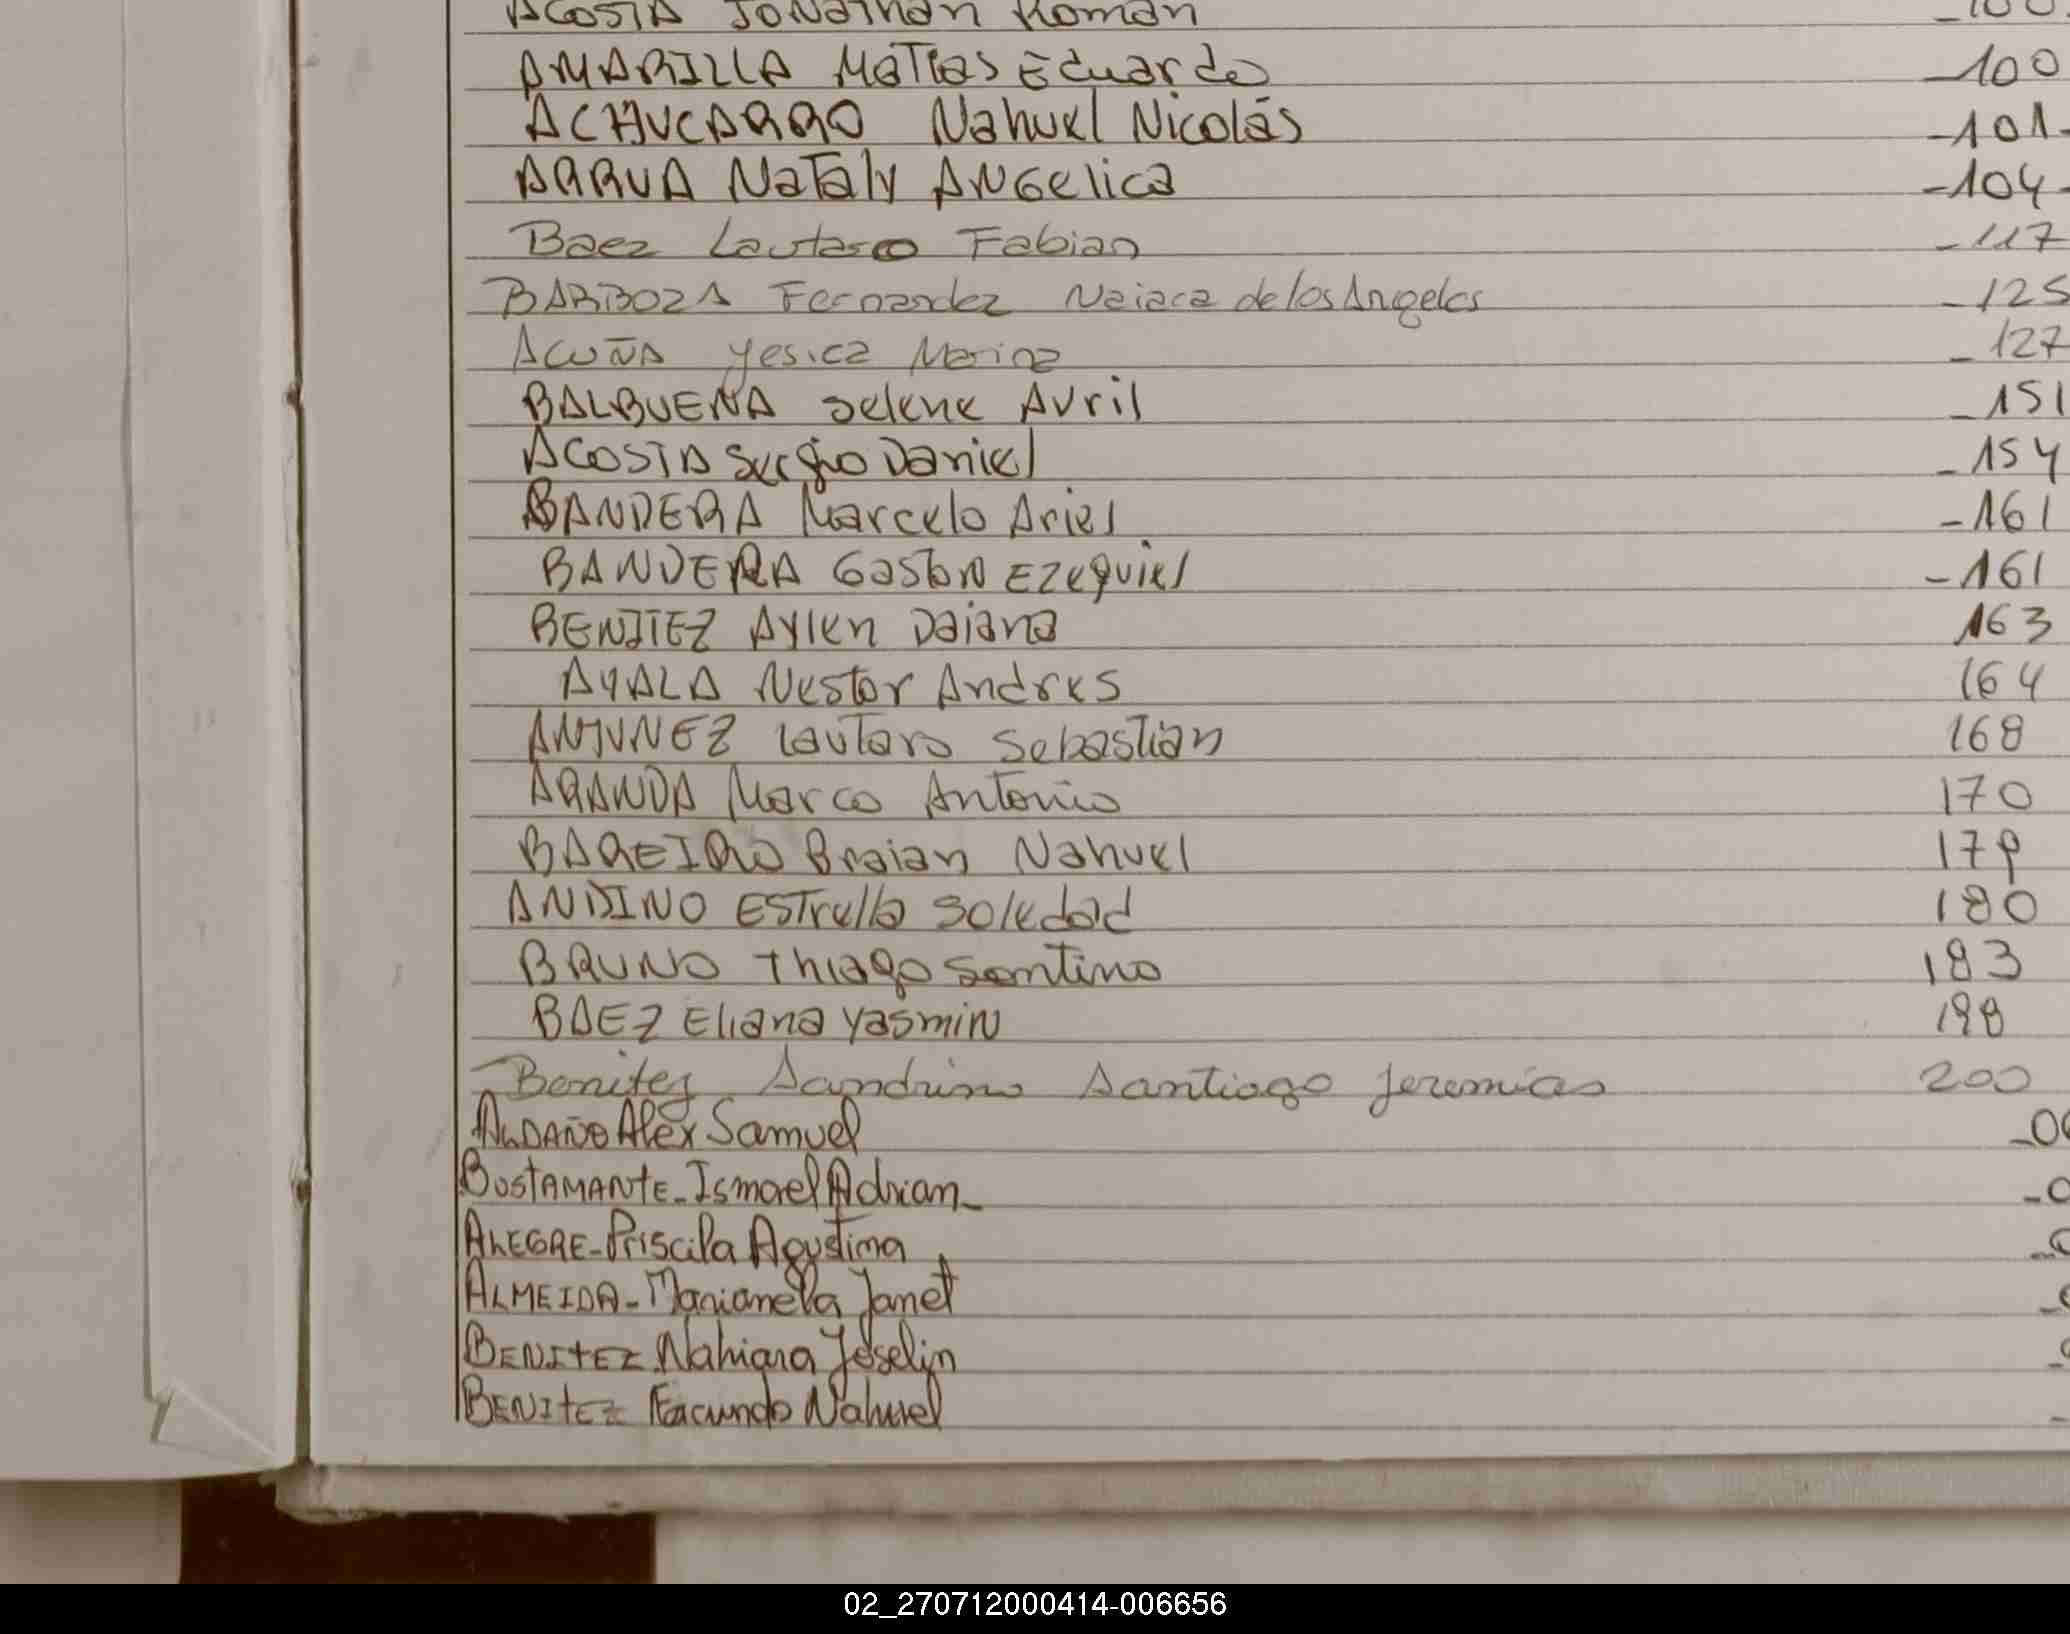 ACOSTA Jonathan Roman -100
AMARILLA Matias Eduardo -100
ACHUCARRO Nahuel Nicolás -101-
ARRUA Nataly Angelica -104-
Baez Lautaro Fabian -117
BARBOZA Fernandez Naiara de los Angeles -125
ACUÑA Yesica Marina -127
BALBUENA Selene Avril -151
ACOSTA Sergio Daniel -154
BANDERA Marcelo Ariel -161
BANDERA Gaston Ezequiel -161
BENITEZ Aylen Daiana 163
AYALA Nestor Andres 164
ANTUNEZ Lautaro Sebastian 168
ARANDA Marco Antonio 170
BAREIRO Braian Nahuel 179
ANDINO Estrella Soledad 180
BRUNO Thiago Santino 183
BAEZ Eliana Yasmin 198
Benitez Sandrino Santiago Jeremias 200
ALDAÑO Alex Samuel
BUSTAMANTE-Ismael Adrian-
ALEGRE-Priscila Agustina
ALMEIDA-Marianela Janet
BENITEZ Nahiara Joselin
BENITEZ Facundo Nahuel
02_270712000414-006656